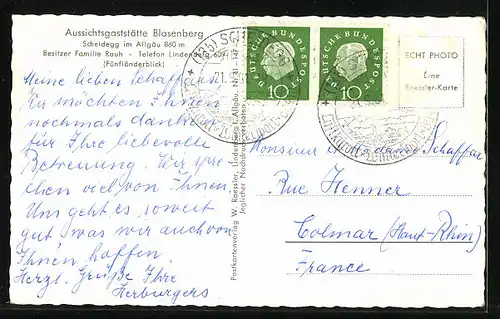 Aussichtsgaststätte Blasenberg
Scheidegg im Allgäu 860 m
Besitzer Familie Rauh - Telefon Lindenberg 607
(Fünfländerblick)
Meine lieben Schaffars,
Wir möchten Ihnen
nochmals danken
für Ihre liebevolle
Betreuung. Wir spre
chen viel von Ihnen
Uns geht es, soweit
gut was wir auch von
Ihnen hoffen.
Herzl. Grüße Ihre
Herburgers
Postkartenverlag W. Roessler, Lindenberg i. Allgäu.
Jeglicher Nachdruck verboten.
DEUTSCHE BUNDESPOST
10
DEUTSCHE BUNDESPOST
10
ECHT PHOTO
Eine
Roessler-Karte
Monsieur Madame Schaffar
Rue Henner
Colmar (Haut-Rhin)
France